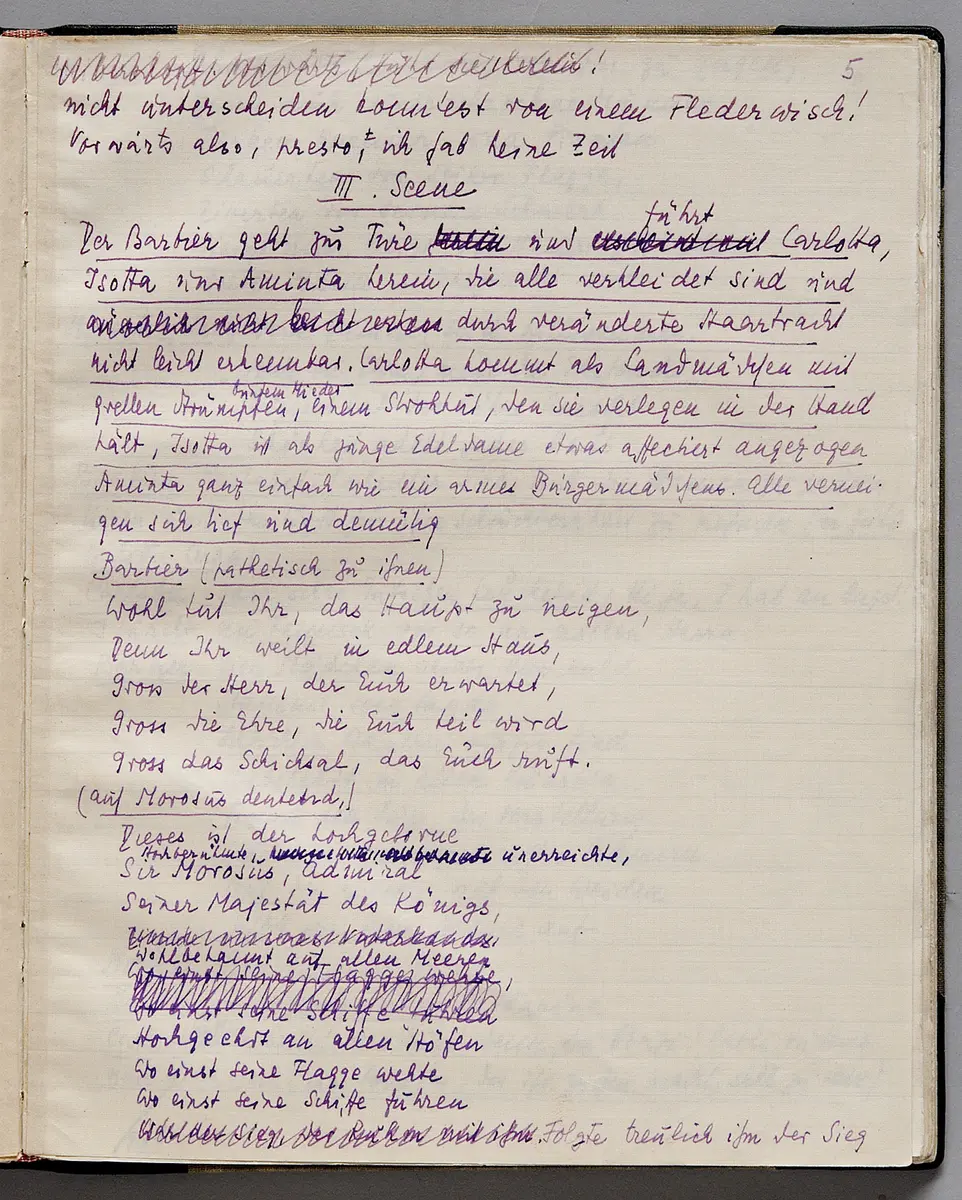 5
nicht unterscheiden könntest von einem Flederwisch!
Vorwärts also, presto, ich hab keine Zeit
III. Scene
führt
Der Barbier geht zu Türe herein und erscheint mit Carlotta,
Isotta und Aminta herein, die alle verkleidet sind und
durch veränderte Haartracht
nicht leicht erkennbar. Carlotta kommt als Landmädchen mit
buntem Mieder
grellen Strümpfen, einem Strohhut, den sie verlegen in der Hand
hält, Isotta ist als junge Edeldame etwas affectiert angezogen
Aminta ganz einfach wie ein armes Bürgermädchens. Alle vernei-
gen sich tief und demütig
Barbier (pathetisch zu ihnen)
Wohl tut Ihr, das Haupt zu neigen,
Denn Ihr weilt in edlem Haus,
Gross der Herr, der Euch erwartet,
Gross die Ehre, die Euch teil wird
Gross das Schicksal, das Euch ruft.
(auf Morosus deutend,)
Dieses ist der hochgeborne
Hochberühmte, unerreichte,
Sir Morosus, Admiral
Seiner Majestät des Königs,
Wohlbekannt auf allen Meeren
Wo einst seine Flagge wehte,
Wo einst seine Schiffe fuhren
Hochgeehrt an allen Höfen
Wo einst seine Flagge wehte
Wo einst seine Schiffe führen
Folgte treulich ihm der Sieg